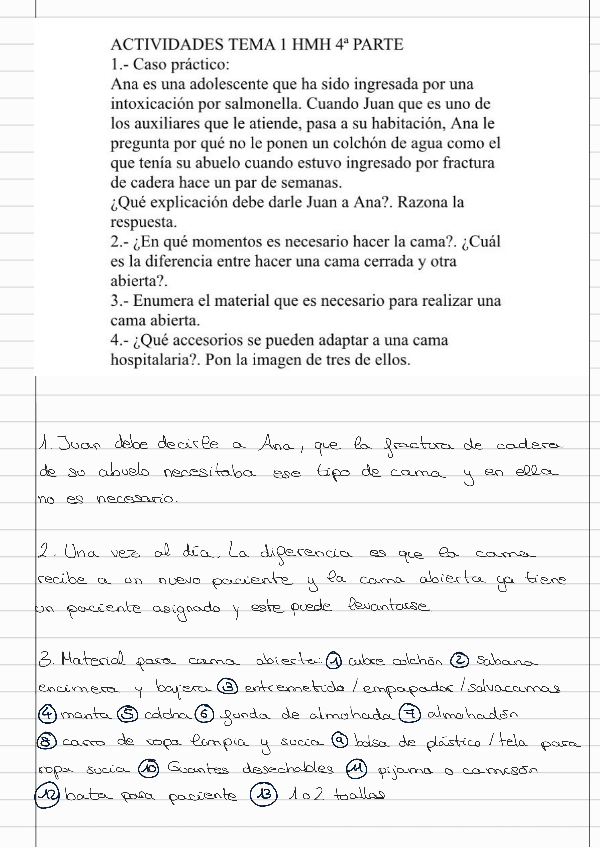 ACTIVIDADES TEMA 1 HMH 4ª PARTE
1.- Caso práctico:
Ana es una adolescente que ha sido ingresada por una
intoxicación por salmonella. Cuando Juan que es uno de
los auxiliares que le atiende, pasa a su habitación, Ana le
pregunta por qué no le ponen un colchón de agua como el
que tenía su abuelo cuando estuvo ingresado por fractura
de cadera hace un par de semanas.
¿Qué explicación debe darle Juan a Ana?. Razona la
respuesta.
2.- ¿En qué momentos es necesario hacer la cama?. ¿Cuál
es la diferencia entre hacer una cama cerrada y otra
abierta?.
3.- Enumera el material que es necesario para realizar una
cama abierta.
4.- ¿Qué accesorios se pueden adaptar a una cama
hospitalaria?. Pon la imagen de tres de ellos.
1. Juan debe decirle a Ana, que la fractura de cadera
de su abuelo necesitaba ese tipo de cama y en ella
no es necesario.
2. Una vez al día. La diferencia es que la cama
recibe a un nuevo paciente y la cama abierta ya tiene
un paciente asignado y este puede levantarse
3. Material para cama abierta: 1 cubre colchón 2 sabana
encimera y bajera 3 entremetida / empapador / salvacamas
4 manta 5 colcha 6 funda de almohada 7 almohadón
8 carro de ropa limpia y sucia 9 bolsa de plástico / tela para
ropa sucia 10 Guantes desechables 11 pijama o camisón
12 bata para paciente 13 1 o 2 toallas